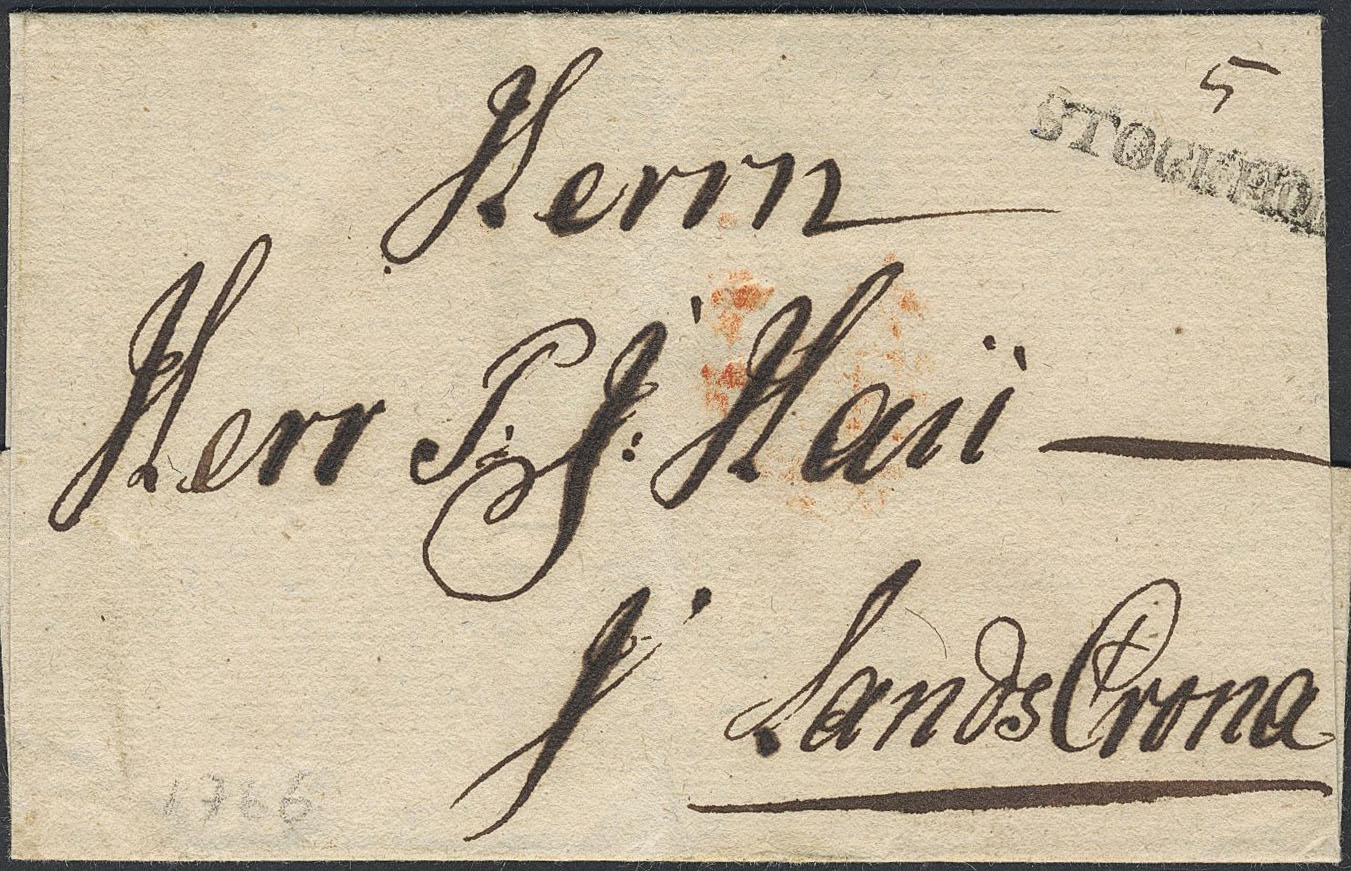 5
STOCKHOL
Herrn
Herr P: J: Haij
J LandsCrona